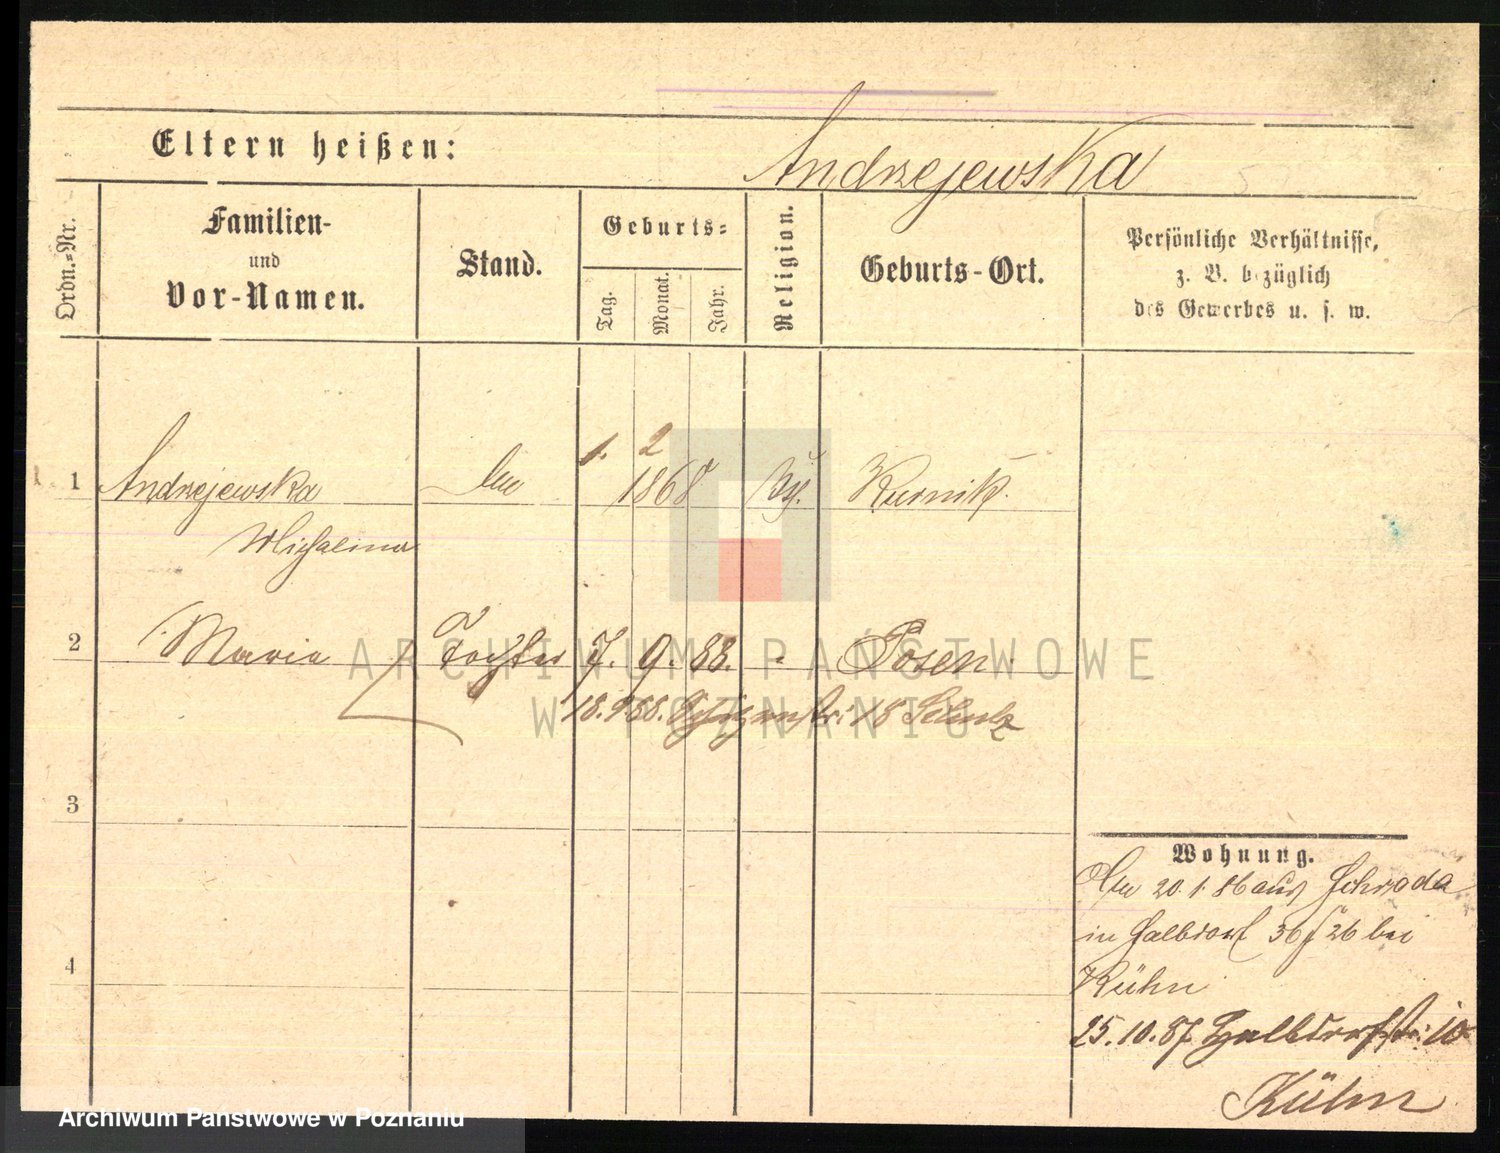 Eltern heißen:
Andrzejewska
Ordn.=Nr.
Familien-
und
Vor-Namen.
Stand.
Geburts=
Tag.
Monat.
Jahr.
Religion.
Geburts-Ort.
Persönliche Verhältnisse,
z. B. bezüglich
des Gewerbes u. s. w.
1. 2
1 Andrzejewska 1868 Kurnik.
Michalina
2 Maria Tochter 7. 9. 88. Posen.
18.9.88. 18 Schulz
3
4
Wohnung.
20.1.86 aus Schroda
in Halbdorf 36/26 bei
Kühn
25.10.87 Halbdorfstr. 10
Kühn
ARCHIWUM PAŃSTWOWE
W POZNANIU
Archiwum Państwowe w Poznaniu